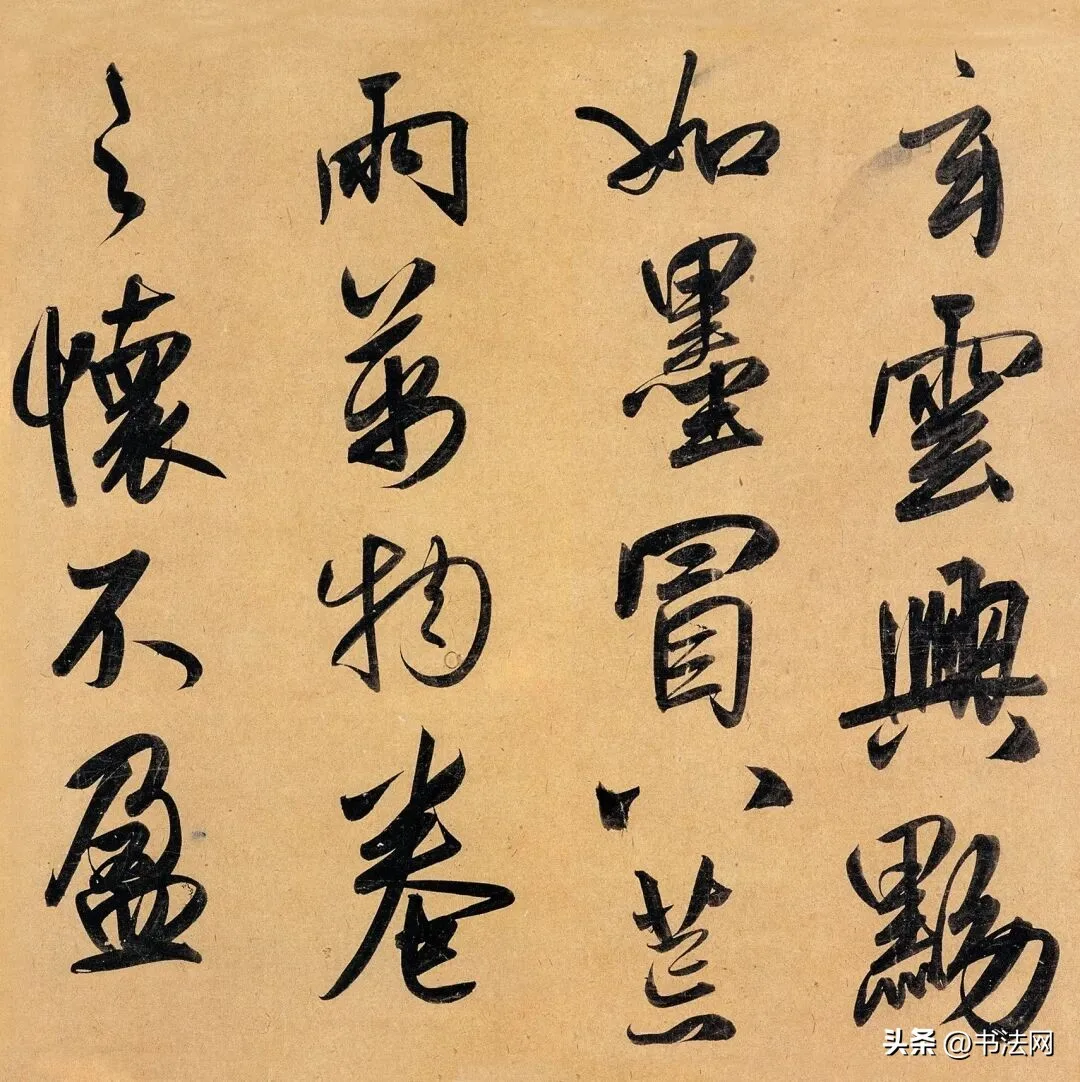 玄雲興黝
如墨冒八荒
雨萬物卷
之懷不盈
头条 @书法网